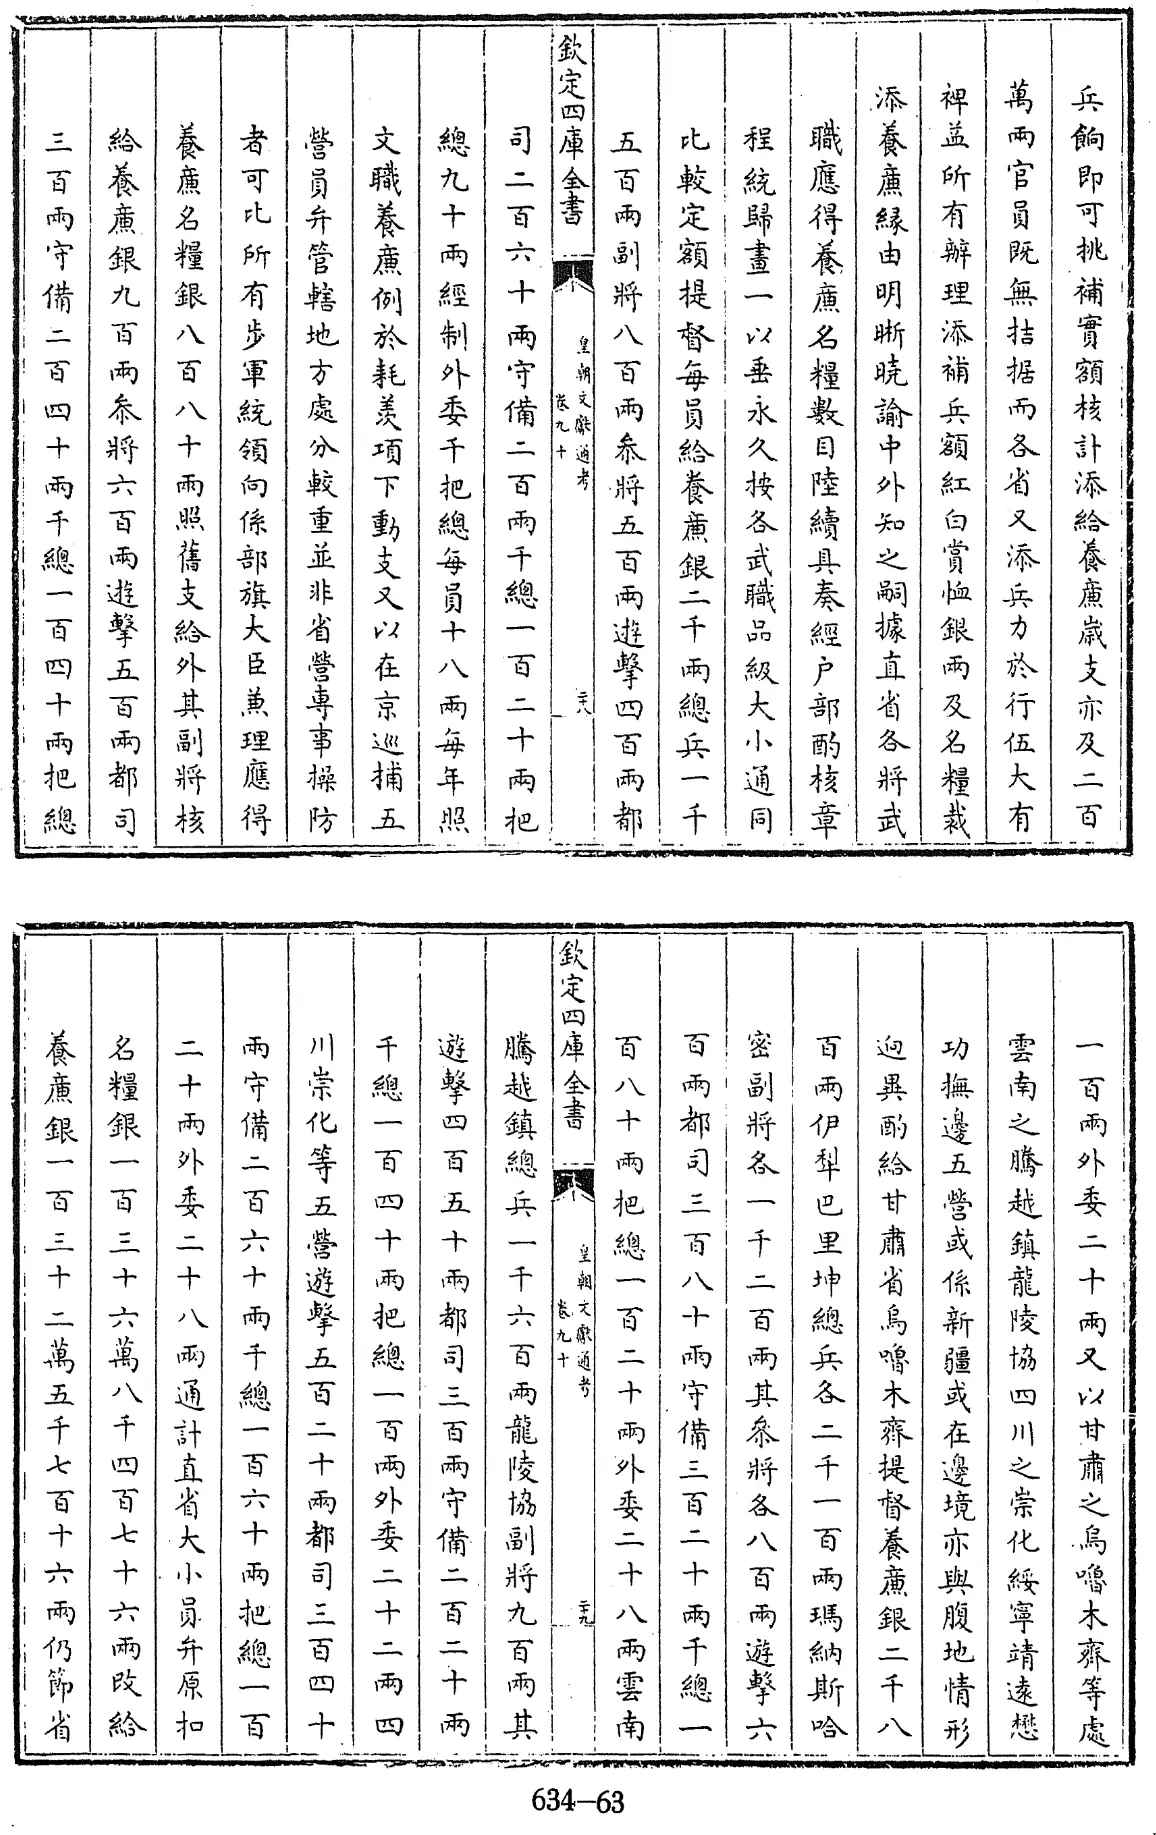 兵餉即可挑補實額核計添給養廉歳支亦及二百
萬兩官員既無拮据而各省又添兵力於行伍大有
裨益所有辦理添補兵額紅白賞恤銀兩及名糧裁
添養廉縁由明晰曉諭中外知之嗣據直省各將武
職應得養廉名糧數目陸續具奏經户部酌核章
程統歸畫一以垂永久按各武職品級大小通同
比較定額提督每員給養廉銀二千兩總兵一千
五百兩副將八百兩叅將五百兩遊擊四百兩都
欽定四庫全書
皇朝文獻通考
卷九十
二十八
司二百六十兩守備二百兩千總一百二十兩把
總九十兩經制外委千把總每員十八兩每年照
文職養廉例於耗羡項下動支又以在京巡捕五
營員弁管轄地方處分較重並非省營專事操防
者可比所有步軍統領向係部旗大臣兼理應得
養廉名糧銀八百八十兩照舊支給外其副將核
給養廉銀九百兩叅將六百兩遊擊五百兩都司
三百兩守備二百四十兩千總一百四十兩把總
一百兩外委二十兩又以甘肅之烏嚕木齊等處
雲南之騰越鎮龍陵協四川之崇化綏寧靖遠懋
功撫邊五營或係新疆或在邊境亦與腹地情形
逈異酌給甘肅省烏嚕木齊提督養廉銀二千八
百兩伊犁巴里坤總兵各二千一百兩瑪納斯哈
密副將各一千二百兩其叅將各八百兩遊擊六
百兩都司三百八十兩守備三百二十兩千總一
百八十兩把總一百二十兩外委二十八兩雲南
欽定四庫全書
皇朝文獻通考
卷九十
二十九
騰越鎮總兵一千六百兩龍陵協副將九百兩其
遊擊四百五十兩都司三百兩守備二百二十兩
千總一百四十兩把總一百兩外委二十二兩四
川崇化等五營遊擊五百二十兩都司三百四十
兩守備二百六十兩千總一百六十兩把總一百
二十兩外委二十八兩通計直省大小員弁原扣
名糧銀一百三十六萬八千四百七十六兩改給
養廉銀一百三十二萬五千七百十六兩仍節省
634-63